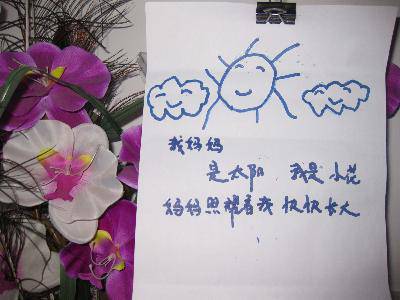 我妈妈
是太阳 我是小花
妈妈照耀着我 快快长大